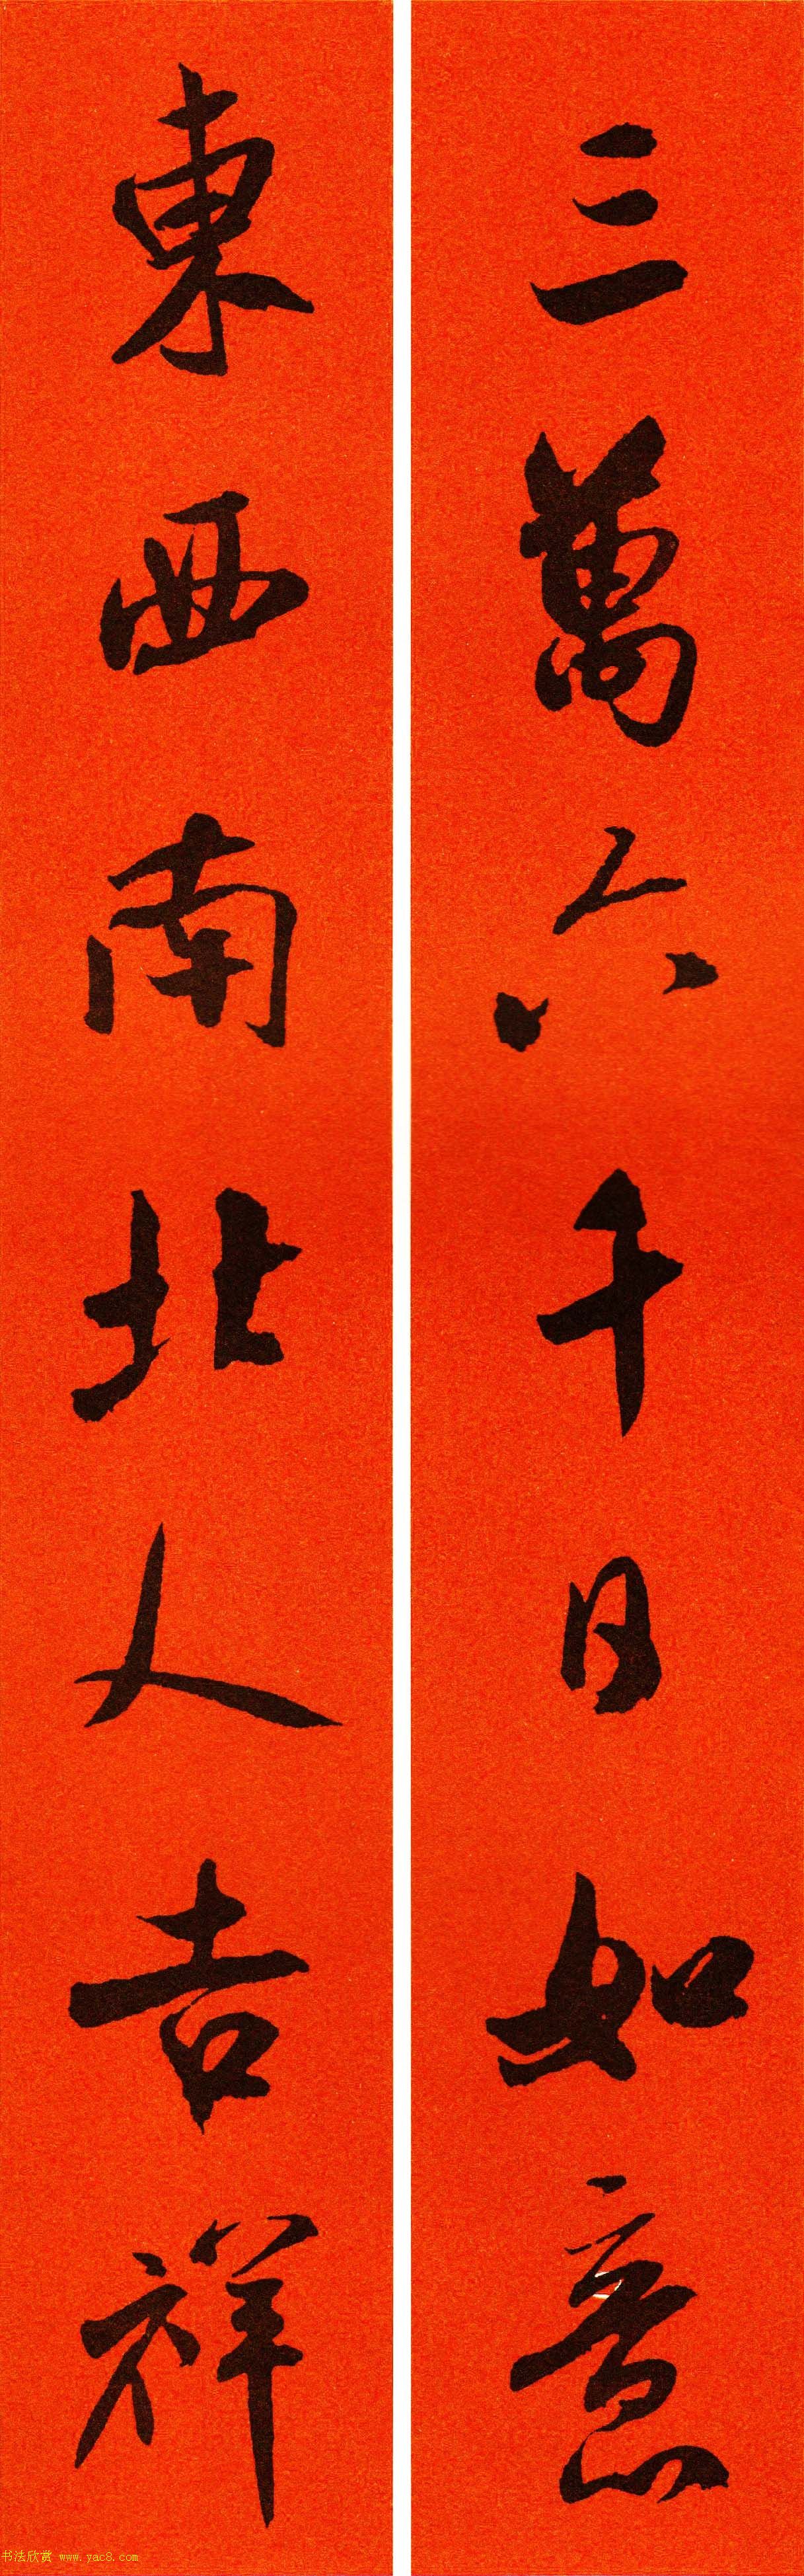 三萬六千日如意
東西南北人吉祥
书法欣赏 www.yac8.com